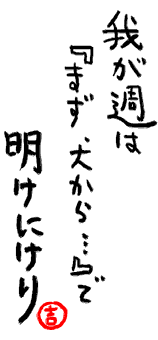 我が週は
『まず、犬から…』で
明けにけり
吉